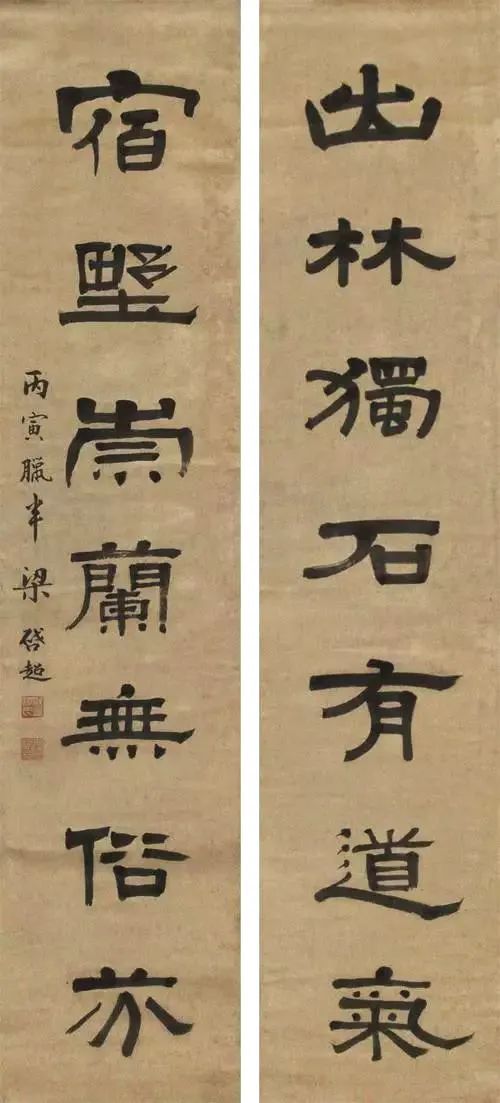 出林獨石有道氣
宿墅崇蘭無俗芬
丙寅臘半梁啓超